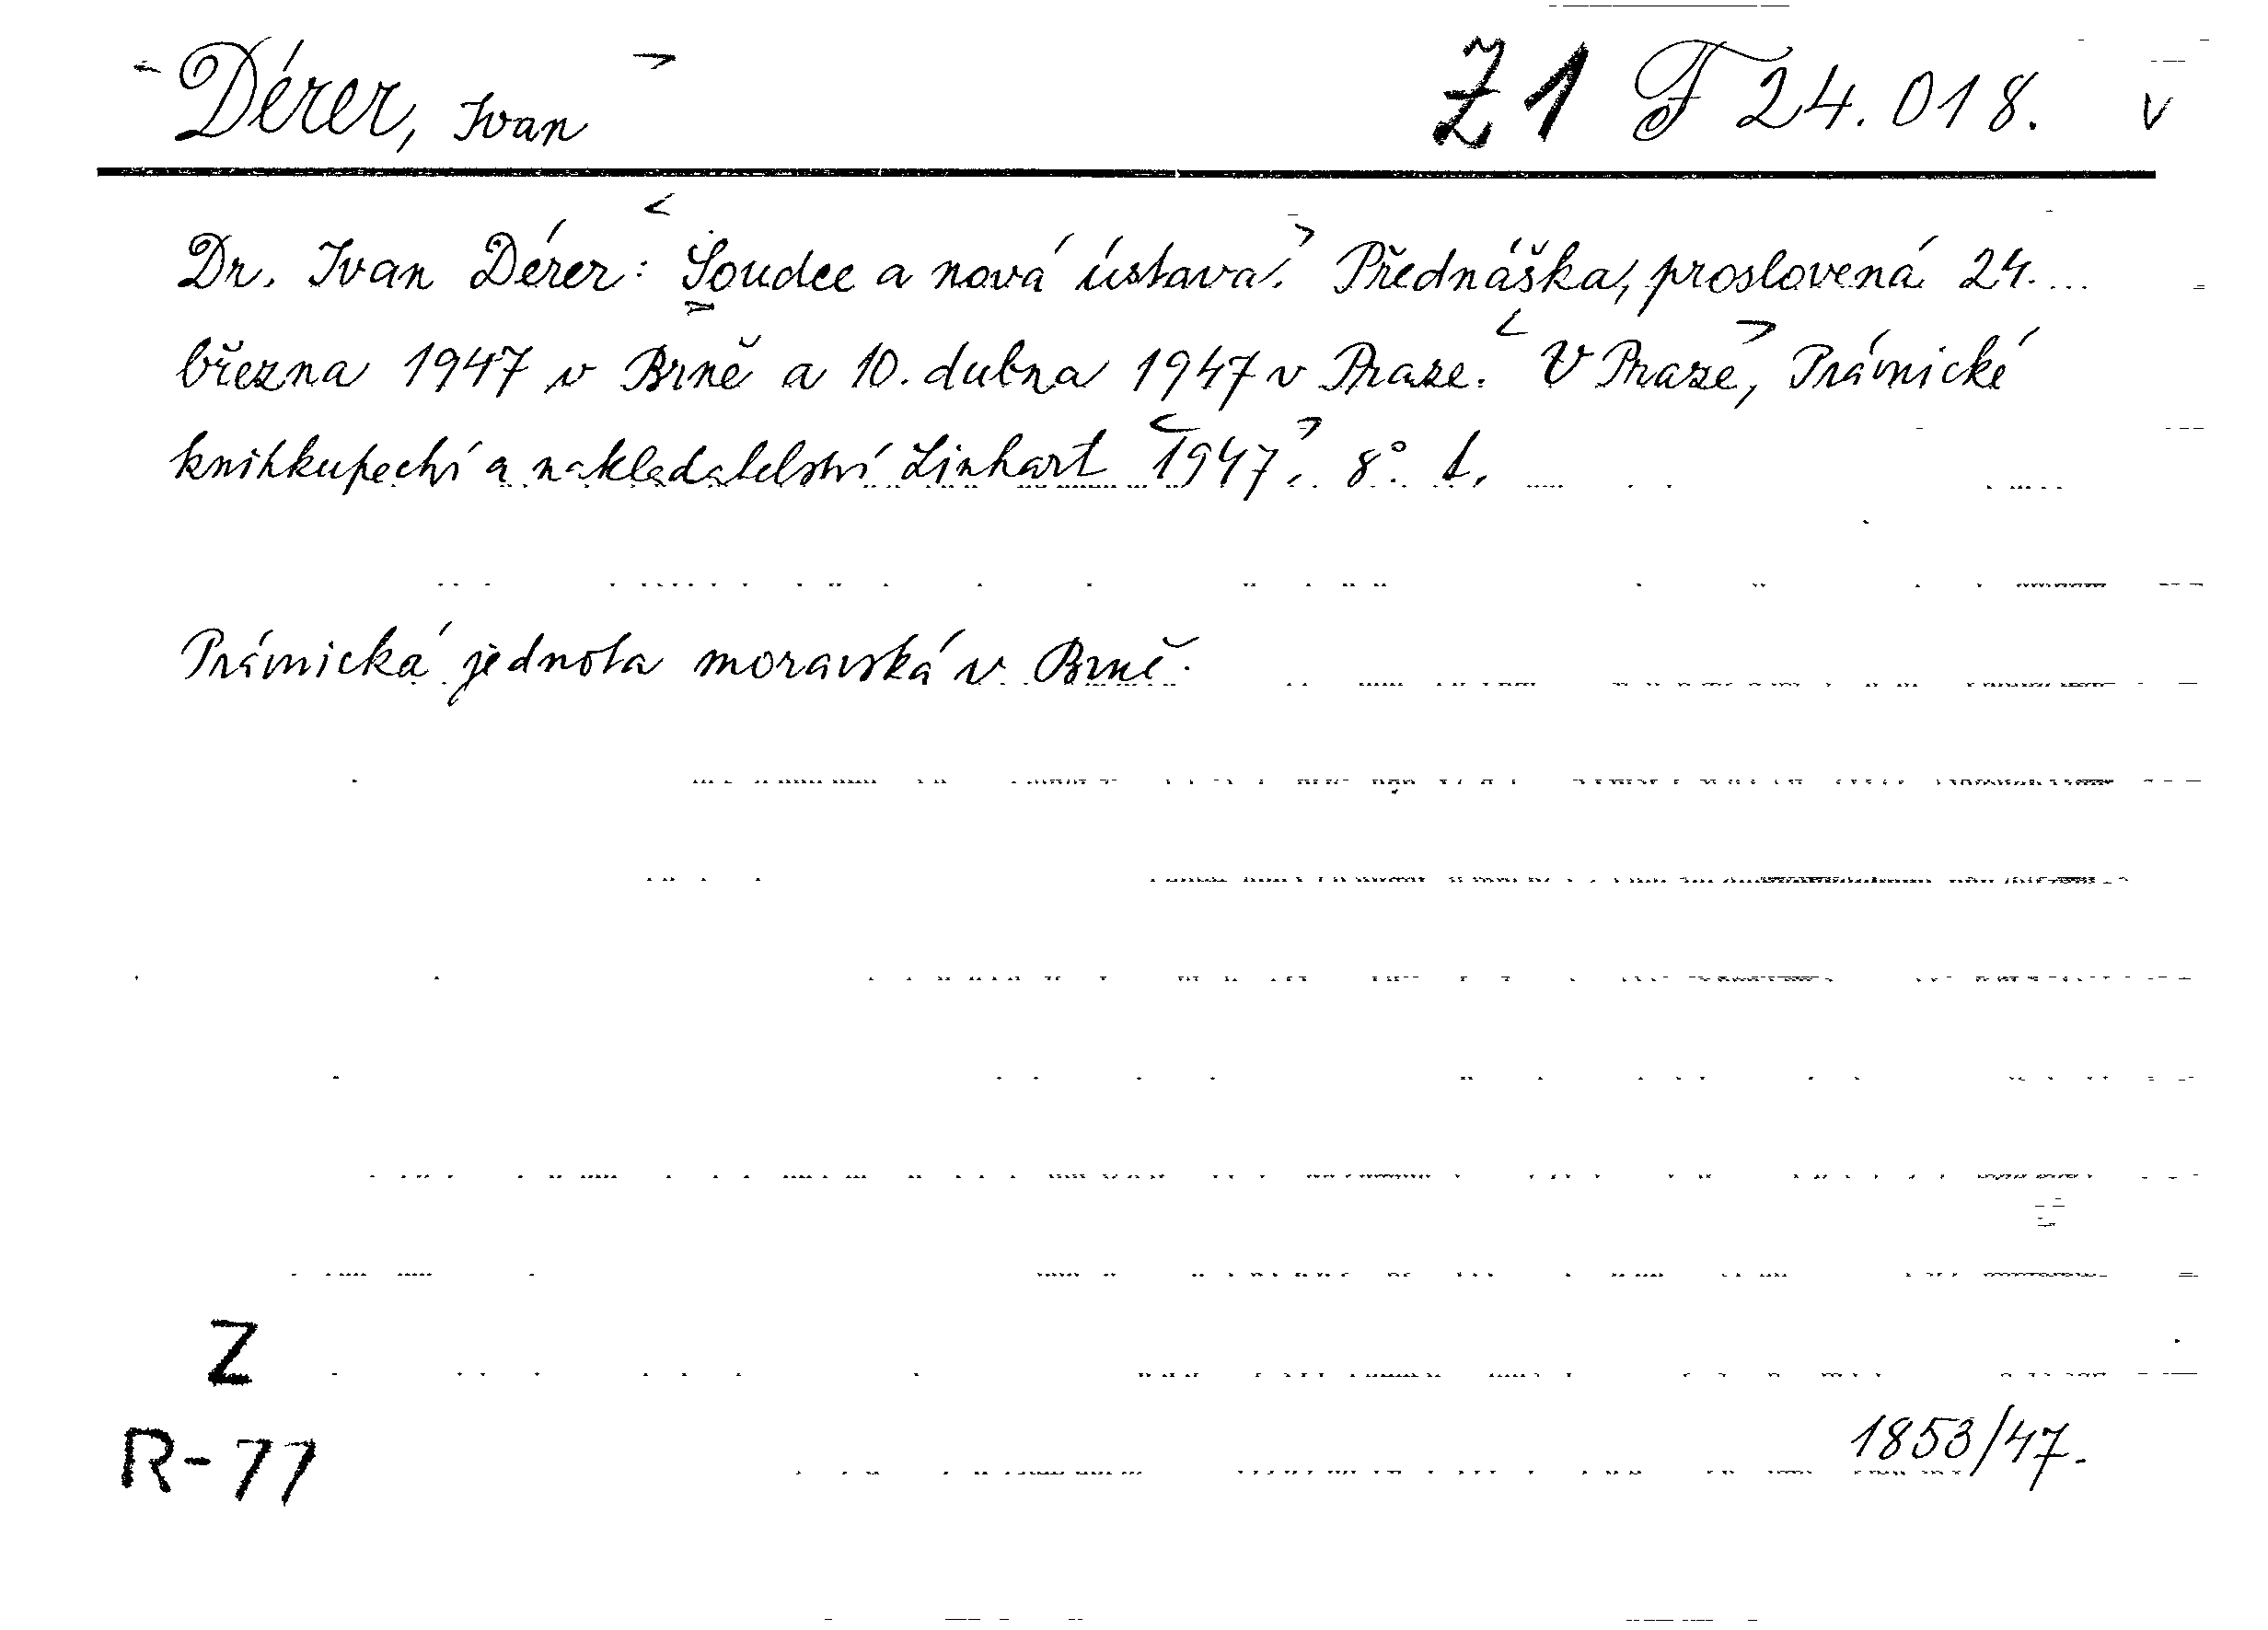 Dérer, Ivan Z 1 F 24.018. v
Dr. Ivan Dérer: Soudce a nová ústava. Přednáška, proslovená 24.
března 1947 v Brně a 10. dubna 1947 v Praze. V Praze, Právnické
knihkupectví a nakladatelství Linhart 1947. 8°. 1.
Právnická jednota moravská v Brně.
Z
R-77
1853/47.